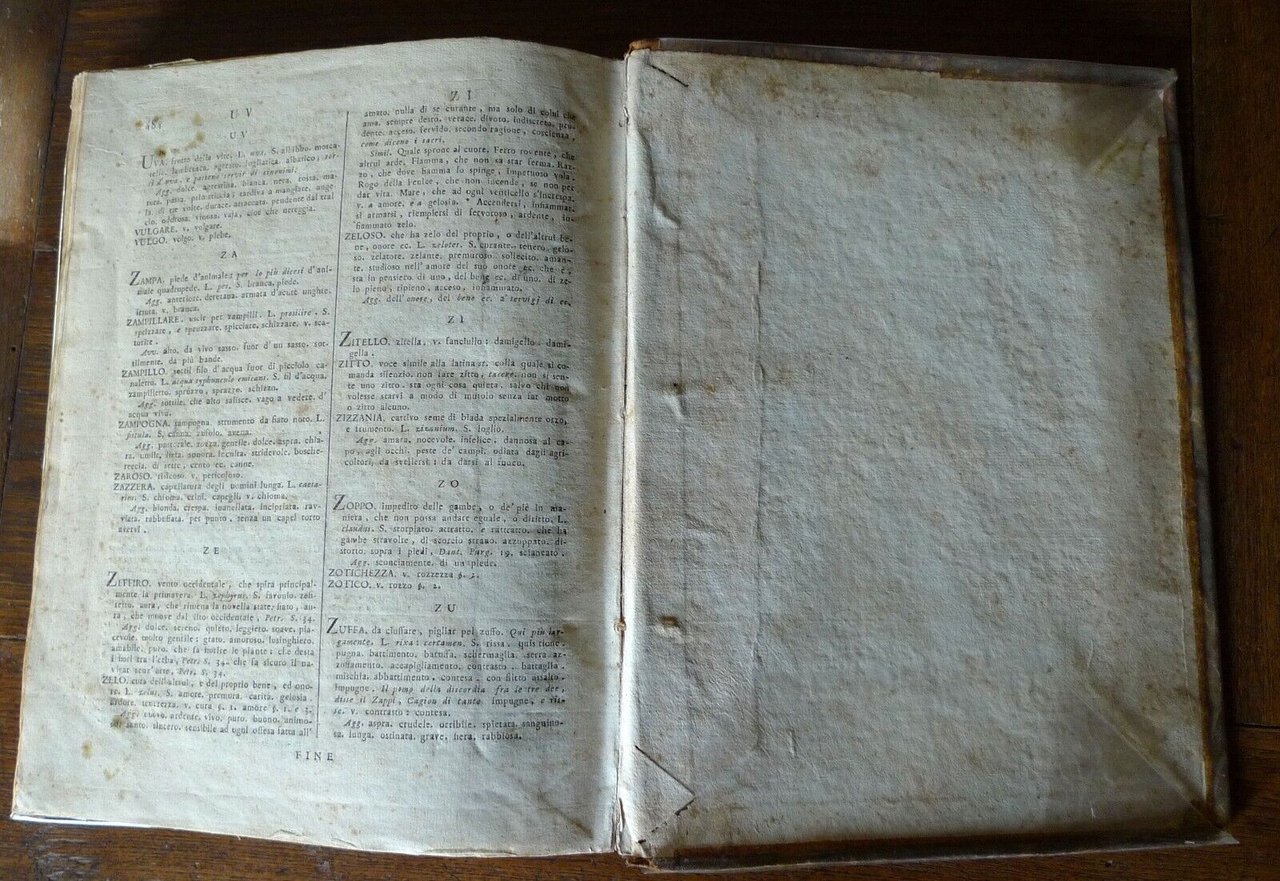 464
U V
U V
UVA. frutto della vite. L. uva. S. alibbo. mosca-
tello. lambrusca. agresto. lugliatica. albatico,
si d'uva, e potranno servir di sinonimi.
Agg. dolce. agrestina. bianca. nera. rossa. ma-
tura. passa. primaticcia; tardiva a mangiare. ange
la. di tre volte. durace. ammaccata. pendente dal tral
cio. odorosa. vinosa. vaja, cioè che nereggia.
VULGARE. v. volgare.
VULGO. volgo. v. plebe.
Z A
ZAMPA. piede d'animale: per lo più dicesi d'ani-
male quadrupede. L. pes. S. branca. piede.
Agg. anteriore. deretana. armata d'acute unghie.
irsuta. v. branca.
ZAMPILLARE. uscir per zampilli. L. prosilire. S.
spilzzare, e spruzzare. spicciare. schizzare. v. sca-
turire.
Avv. alto. da vivo sasso. fuor d'un sasso. sot-
tilmente. da più bande.
ZAMPILLO. sottil filo d'acqua fuor di picciolo ca-
naletto. L. acqua syphunculo emicans. S. fil d'acqua.
zampilletto. spruzzo, sprazzo. schizzo.
Agg. sottile. che alto salisce. vago a vedere. d'
acqua viva.
ZAMPOGNA. sampogna. strumento da fiato noto. L.
fistula. S. canna. zufolo. avena.
Agg. pastorale. rozza. gentile. dolce. aspra. chia-
ra. umile. lieta. sonora. incolta. stridevole. bosche-
reccia. di sette, cento ec. canne.
ZAROSO. risicoso. v. pericoloso.
ZAZZERA. capellatura degli uomini lunga. L. caesa-
ries. S. chioma. crini. capegli. v. chioma.
Agg. bionda. crespa. innanellata. incipriata. rav-
viata. rabbuffata. per punto, senza un capel torto
avervi.
Z E
ZEFFIRO. vento occidentale, che spira principal-
mente la primavera. L. zephyrus. S. favonio. zeffi-
retto. aura, che rimena la novella state. fiato, au-
ra, che muove dal lito occidentale, Petr. S. 34.
Agg. dolce. sereno. quieto. leggiero. soave. pia-
cevole. molto gentile: grato. amoroso. lusinghiero.
amabile. puro. che fa fiorire le piante: che desta
i fiori tra l'erba, Petr. S. 34. che fa sicuro il na-
vigar senz'arte, Petr. S. 34.
ZELO. cura dell'altrui, e del proprio bene, ed ono-
re. L. zelus. S. amore. premura. carità. gelosia.
ardore. tenerezza. v. cura §. 1. amore §. 1. e 3.
Agg. nuovo. ardente. vivo. puro. buono. animo-
so. santo. sincero. sensibile ad ogni offesa fatta all'
Z I
amato. nulla di se curante, ma solo di colui che
ama. sempre desto. verace. divoto. indiscreto. pru-
dente. acceso. fervido. secondo ragione, coscienza,
come dicono i sacri.
Simil. Quale sprone al cuore. Ferro rovente, che
altrui arde. Fiamma, che non sa star ferma. Raz-
zo, che dove fiamma lo spinge, impetuoso vola.
Rogo della Fenice, che non incende, se non per
dar vita. Mare, che ad ogni venticello s'increspa.
v. a amore, e a gelosia. * Accendersi, infiammar-
si armarsi, riempiersi di fervoroso, ardente, in-
fiammato zelo.
ZELOSO. che ha zelo del proprio, o dell'altrui be-
ne, onore ec. L. zelotes. S. curante. tenero. gelo-
so. zelatore. zelante. premuroso. sollecito. aman-
te. studioso nell'amore del suo onore ec. che è,
sta in pensiero di uno, del bene ec. di uno. di ze-
lo pieno, ripieno, acceso, infiammato.
Agg. dell'onore, del bene ec. a' servigi di ec.
Z I
ZITELLO. zitella. v. fanciullo: damigello: dami-
gella.
ZITTO. voce simile alla latina st. colla quale si co-
manda silenzio. non fare zitto, tacere. non si sen-
te uno zitto. sta ogni cosa quieta. salvo chi non
volesse starvi a modo di mutolo senza far motto
o zitto alcuno.
ZIZZANIA. cattivo seme di biada spezialmente orzo,
e frumento. L. zizanium. S. loglio.
Agg. amara. nocevole. infelice. dannosa al ca-
po, agli occhi. peste de' campi. odiata dagli agri-
coltori, da svellersi: da darsi al fuoco.
Z O
ZOPPO. impedito delle gambe, o de' piè in ma-
niera, che non possa andare eguale, o diritto. L.
claudus. S. storpiato. attratto. e rattratto. che ha
gambe stravolte, di scorcio strano. azzoppato. di-
storto. sopra i piedi, Dant. Purg. 19. sciancato.
Agg. sconciamente. di un piede.
ZOTICHEZZA. v. rozzezza §. 2.
ZOTICO. v. rozzo §. 2.
Z U
ZUFFA. da ciuffare, pigliar pel zuffo. Qui più lar-
gamente. L. rixa: certamen. S. rissa. quistione.
pugna. battimento. baruffa. schermaglia. serra. az-
zuffamento. accapigliamento. contrasto. battaglia.
mischia. abbattimento. contesa. conflitto. assalto.
impugne. Il pomo della discordia fra le tre dee,
disse il Zappi, Cagion di tante impugne, e ris-
se. v. contrasto: contesa.
Agg. aspra. crudele. orribile. spietata. sanguino-
sa. lunga. ostinata. grave. fiera. rabbiosa.
FINE